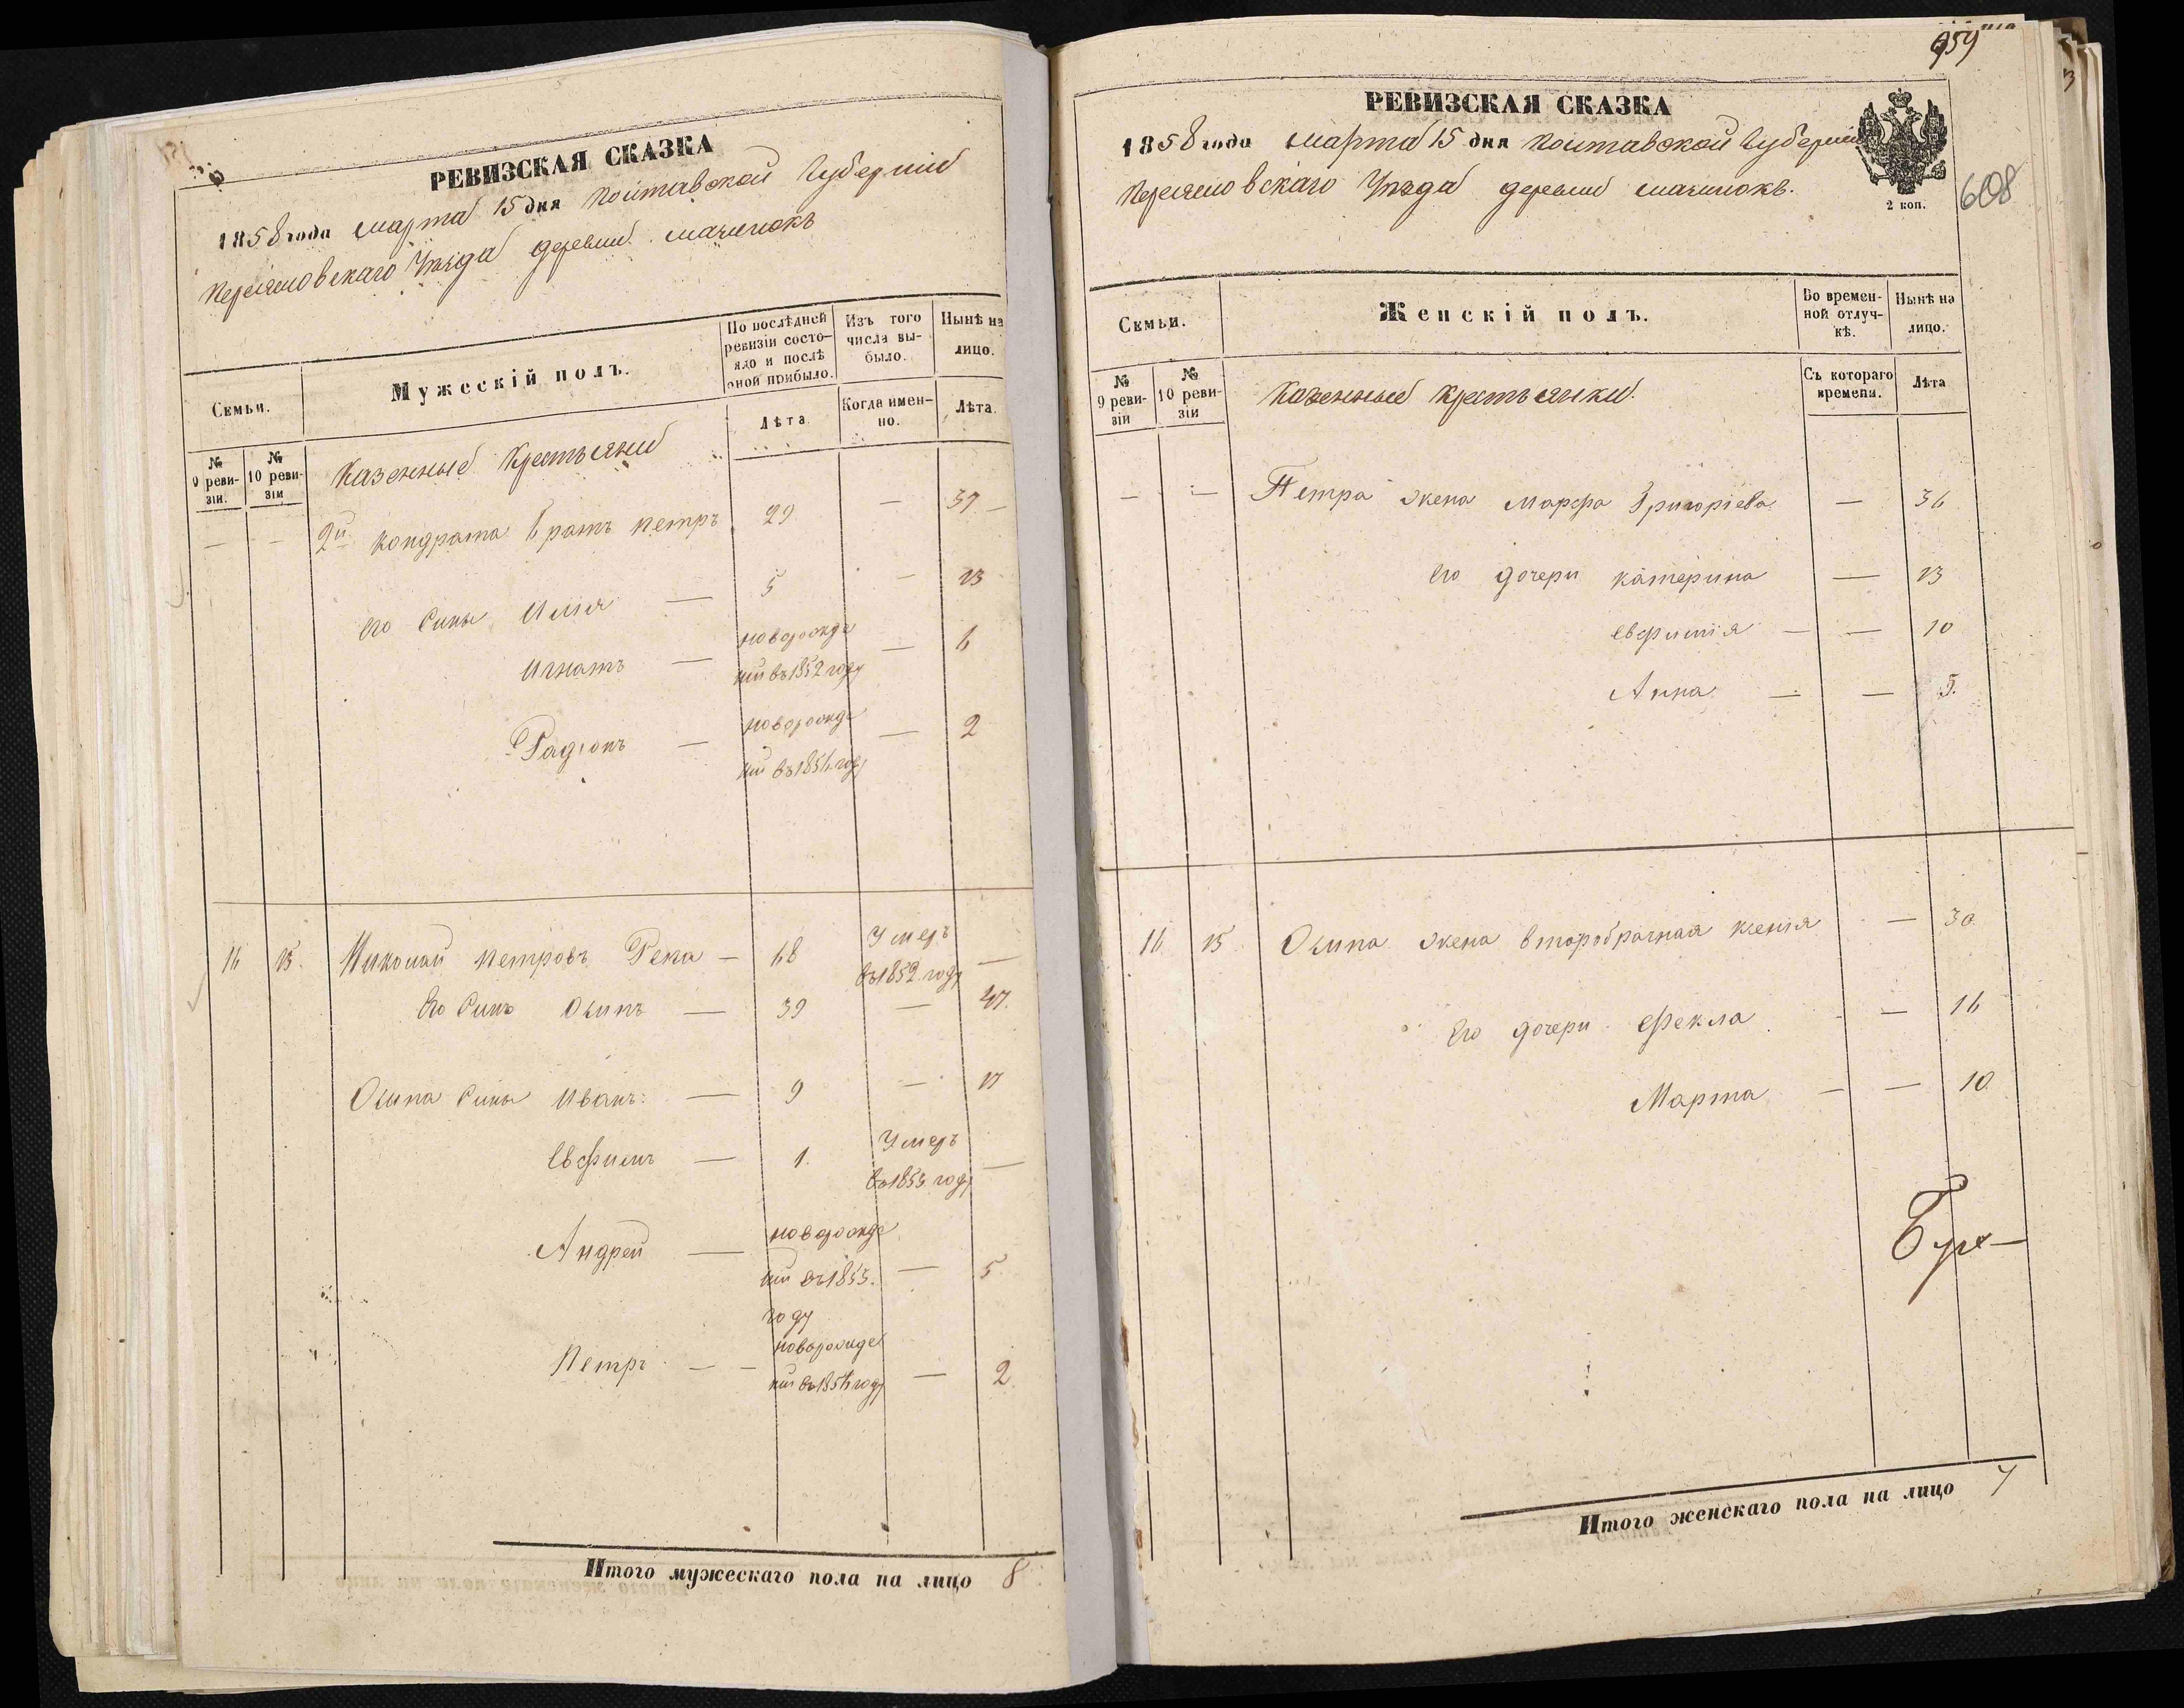 РЕВИЗСКАЯ СКАЗКА
1858 года марта 15 дня Полтавской Губерніи
Переяславскаго Уѣзда деревни
Семьи.
Мужескій полъ.
По послѣдней ревизіи состояло и послѣ оной прибыло.
Изъ того числа выбыло.
Нынѣ на лицо.
Лѣта
Когда именно.
Лѣта.
№ 9 ревизіи.
№ 10 ревизіи
Казенные Крестьяне
— — 2й Кондрата братъ Петръ 29 — 37
Его Сины Илія — 5 — 13
Игнатъ — новорожденій въ 1852 году — 6
Радіонъ — новорожденій въ 1856 году — 2
16 15. Николай Петровъ Река — 68 Умеръ въ 1852 году —
Его Синъ Осипъ — 39 — 47.
Осипа Сины Иванъ — 9 — 17
Евфимъ — 1. Умеръ въ 1853 году —
Андрей — новорожденій въ 1853. году — 5
Петръ — — новорожденій въ 1856 году — 2
Итого мужескаго пола на лицо 8
959
РЕВИЗСКАЯ СКАЗКА
1858 года марта 15 дня Полтавской Губерніи
Переяславскаго Уѣзда деревни
2 коп.
608
Семьи.
Женскій полъ.
Во временной отлучкѣ.
Нынѣ на лицо.
№ 9 ревизіи
№ 10 ревизіи
Казенные Крестьянки.
Съ котораго времени.
Лѣта
— — Петра жена Марфа Григоріева — 36
Его дочери Катерина — 13
Евфимія — — 10
Анна — — 5.
16 15 Осипа жена второбрачная Ксенія — 30
Его дочери Фекла — 16
Марта — — 10
Итого женскаго пола на лицо 7